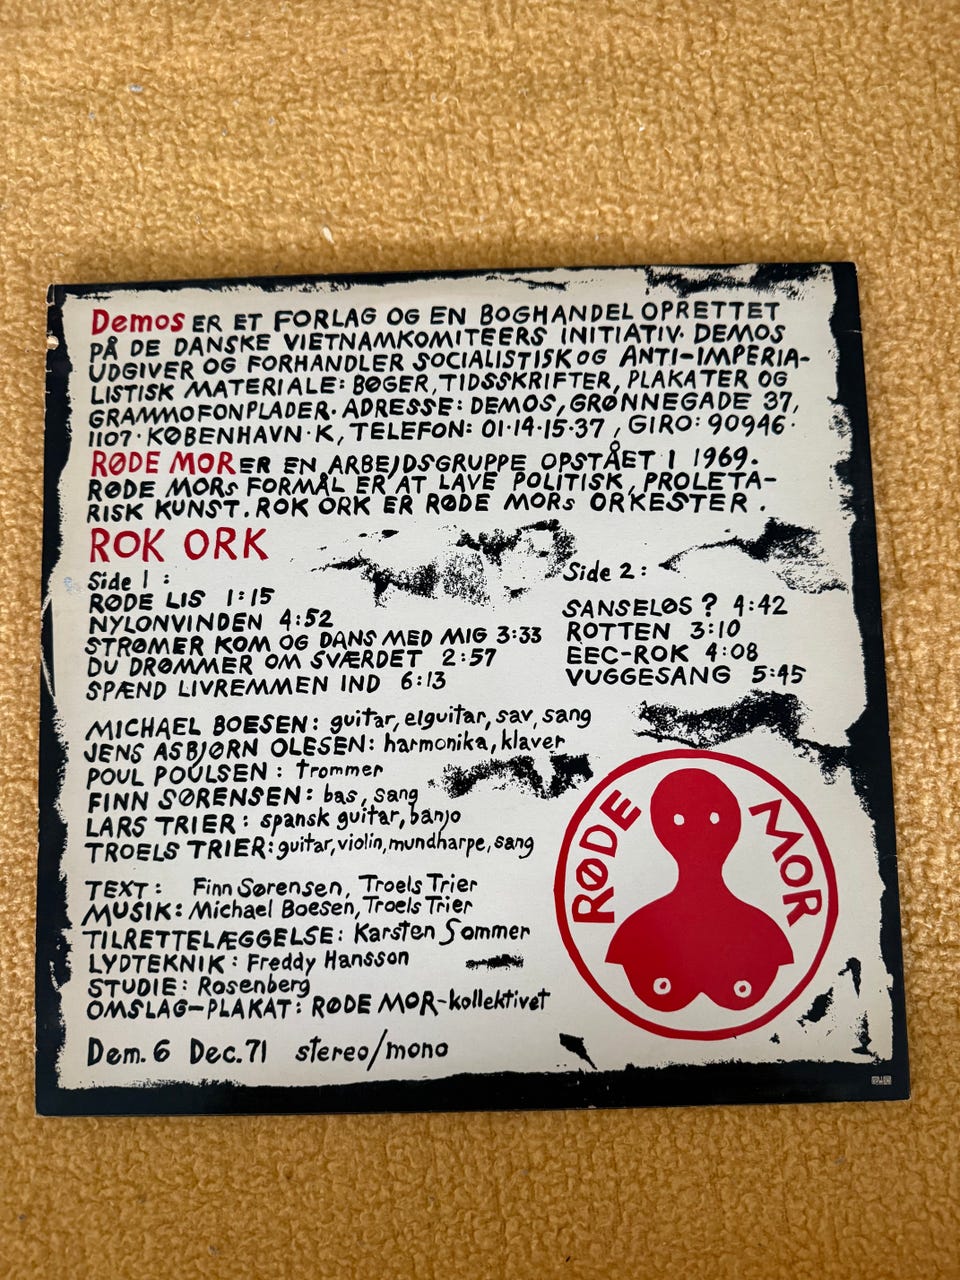 Demos ER ET FORLAG OG EN BOGHANDEL OPRETTET
PÅ DE DANSKE VIETNAMKOMITEERS INITIATIV. DEMOS
UDGIVER OG FORHANDLER SOCIALISTISK OG ANTI-IMPERIA-
LISTISK MATERIALE: BØGER, TIDSSKRIFTER, PLAKATER OG
GRAMMOFONPLADER. ADRESSE: DEMOS, GRØNNEGADE 37,
1107 · KØBENHAVN · K, TELEFON: 01·14·15·37, GIRO: 90946.
RØDE MOR ER EN ARBEJDSGRUPPE OPSTÅET I 1969.
RØDE MORs FORMÅL ER AT LAVE POLITISK, PROLETA-
RISK KUNST. ROK ORK ER RØDE MORs ORKESTER.
ROK ORK
Side 1:
RØDE LIS 1:15
NYLONVINDEN 4:52
STRØMER KOM OG DANS MED MIG 3:33
DU DRØMMER OM SVÆRDET 2:57
SPÆND LIVREMMEN IND 6:13
Side 2:
SANSELØS? 4:42
ROTTEN 3:10
EEC-ROK 4:08
VUGGESANG 5:45
MICHAEL BOESEN: guitar, elguitar, sav, sang
JENS ASBJØRN OLESEN: harmonika, klaver
POUL POULSEN: trommer
FINN SØRENSEN: bas, sang
LARS TRIER: spansk guitar, banjo
TROELS TRIER: guitar, violin, mundharpe, sang
TEXT: Finn Sørensen, Troels Trier
MUSIK: Michael Boesen, Troels Trier
TILRETTELÆGGELSE: Karsten Sommer
LYDTEKNIK: Freddy Hansson
STUDIE: Rosenberg
OMSLAG-PLAKAT: RØDE MOR-kollektivet
Dem. 6 Dec. 71 stereo/mono
RØDE MOR